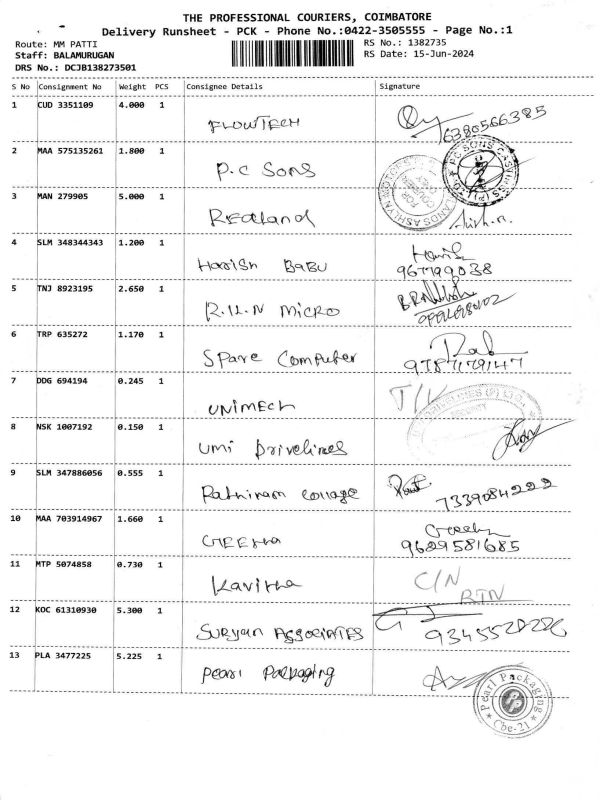 THE PROFESSIONAL COURIERS, COIMBATORE
Delivery Runsheet - PCK - Phone No.:0422-3505555 - Page No.:1
Route: MM PATTI RS No.: 1382735
Staff: BALAMURUGAN RS Date: 15-Jun-2024
DRS No.: DCJB138273501
S No Consignment No Weight PCS Consignee Details Signature
1 CUD 3351109 4.000 1 FLOWTECH 6380566385
2 MAA 575135261 1.800 1 P.C Sons
P.C SONS CASTINGS (P) LTD
3 MAN 279905 5.000 1 Redland
REDLANDS ASHLYN MOTORS
FOR
4 SLM 348344343 1.200 1 Harish BABU Harish
967799038
5 TNJ 8923195 2.650 1 R.H.N MICRO
6 TRP 635272 1.170 1 Spare Computer
9787179147
7 DDG 694194 0.245 1 UNIMECH
8 NSK 1007192 0.150 1 UMI Drivelines
DRIVELINES (P) LTD.
SECURITY
9 SLM 347886056 0.555 1 Rathinam College
7339084222
10 MAA 703914967 1.660 1 GEETHA Geetha
9629581685
11 MTP 5074858 0.730 1 Kavitha C/N
RTN
12 KOC 61310930 5.300 1 Suryan Associates
13 PLA 3477225 5.225 1 Pearl Packaging
Pearl Packaging
Cbe-21